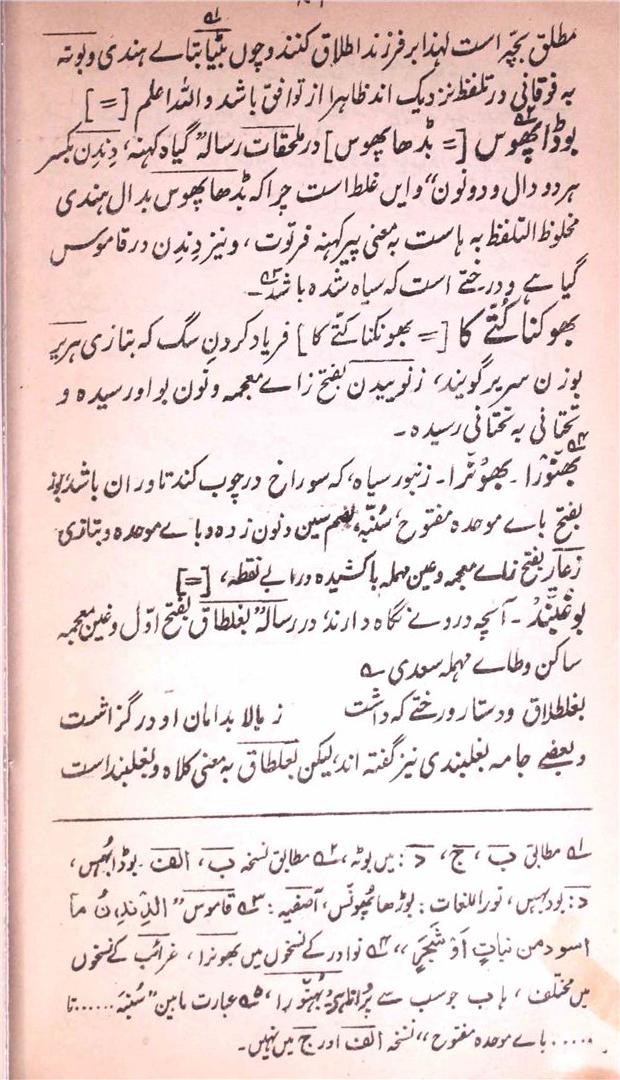 مطلق بچّہ است لہٰذا بر فرزند اطلاق کنند و چوں بٹیا بتاے ہندی و بوتہ
بہ فوقانی در تلفظ نزدیک اند ظاہرا از توافق باشد و اللہ اعلم [=]
بوڈا پھوس [= بڈھا پھوس] در ملحقات رسالہ "گیاہ کہنہ، دِندِن بکسر
ہر دو دال و دو نون" و ایں غلط است چرا کہ بڈھا پھوس بدال ہندی
مخلوط التلفظ بہ ہاست بہ معنی پیر کہنہ فرتوت، و نیز دِندِن در قاموس
گیاہے و درختے است کہ سیاہ شدہ باشد۔
بھوکنا کُتّے کا [= بھونکنا کتّے کا] فریاد کردنِ سگ کہ بتازی ہریر
بوزن سریر گویند، زنوییدن بفتح زاے معجمہ و نون بواو رسیدہ و
تحتانی بہ تحتانی رسیدہ۔
بھنورا ۔ بھونرا ۔ زنبور سیاہ، کہ سوراخ در چوب کند تا در ان باشد، بوز
بفتح باے موحدہ مفتوح، سُنبّہ، بضم سین و نون زدہ و باے موحدہ و بتازی
زعار بفتح زاے معجمہ و عین مہملہ باکشیدہ در اے بے نقطہ، [=]
بوغبند ۔ آنچہ درو نے نگاہ دارند، در رسالہ "بغلطاق بفتح اوّل و غین معجمہ
ساکن و طاے مہملہ سعدی ے
بغلطاق و دستار و رختے کہ داشت ز بالا بدامان او در گزاشت
و بعضے جامہ بغلبندی نیز گفتہ اند، لیکن بغلطاق بہ معنی کلاہ و بغلبند است
۱؎ مطابق ب، ج، د : میں بوٹہ، ۲؎ مطابق نسخہ ب، الف ۔ بوڈا بھُس،
د: بود بہیس، نور اللغات : بوڑھا پھونس، آصفیہ : ۳؎ قاموس "الدِندِنُ ما
اسود من نباتٍ اَوْ شَجَرٍ"، ۴؎ نوادر کے نسخوں میں بھونرا، غرائب کے نسخوں
میں مختلف، ہاں ب جو سب سے پُرانا ہے، را، ۵؎ عبارت مابین "سُنبّہ ...... تا
..... باے موحدہ مفتوح" نسخہ الف اور ج میں نہیں۔